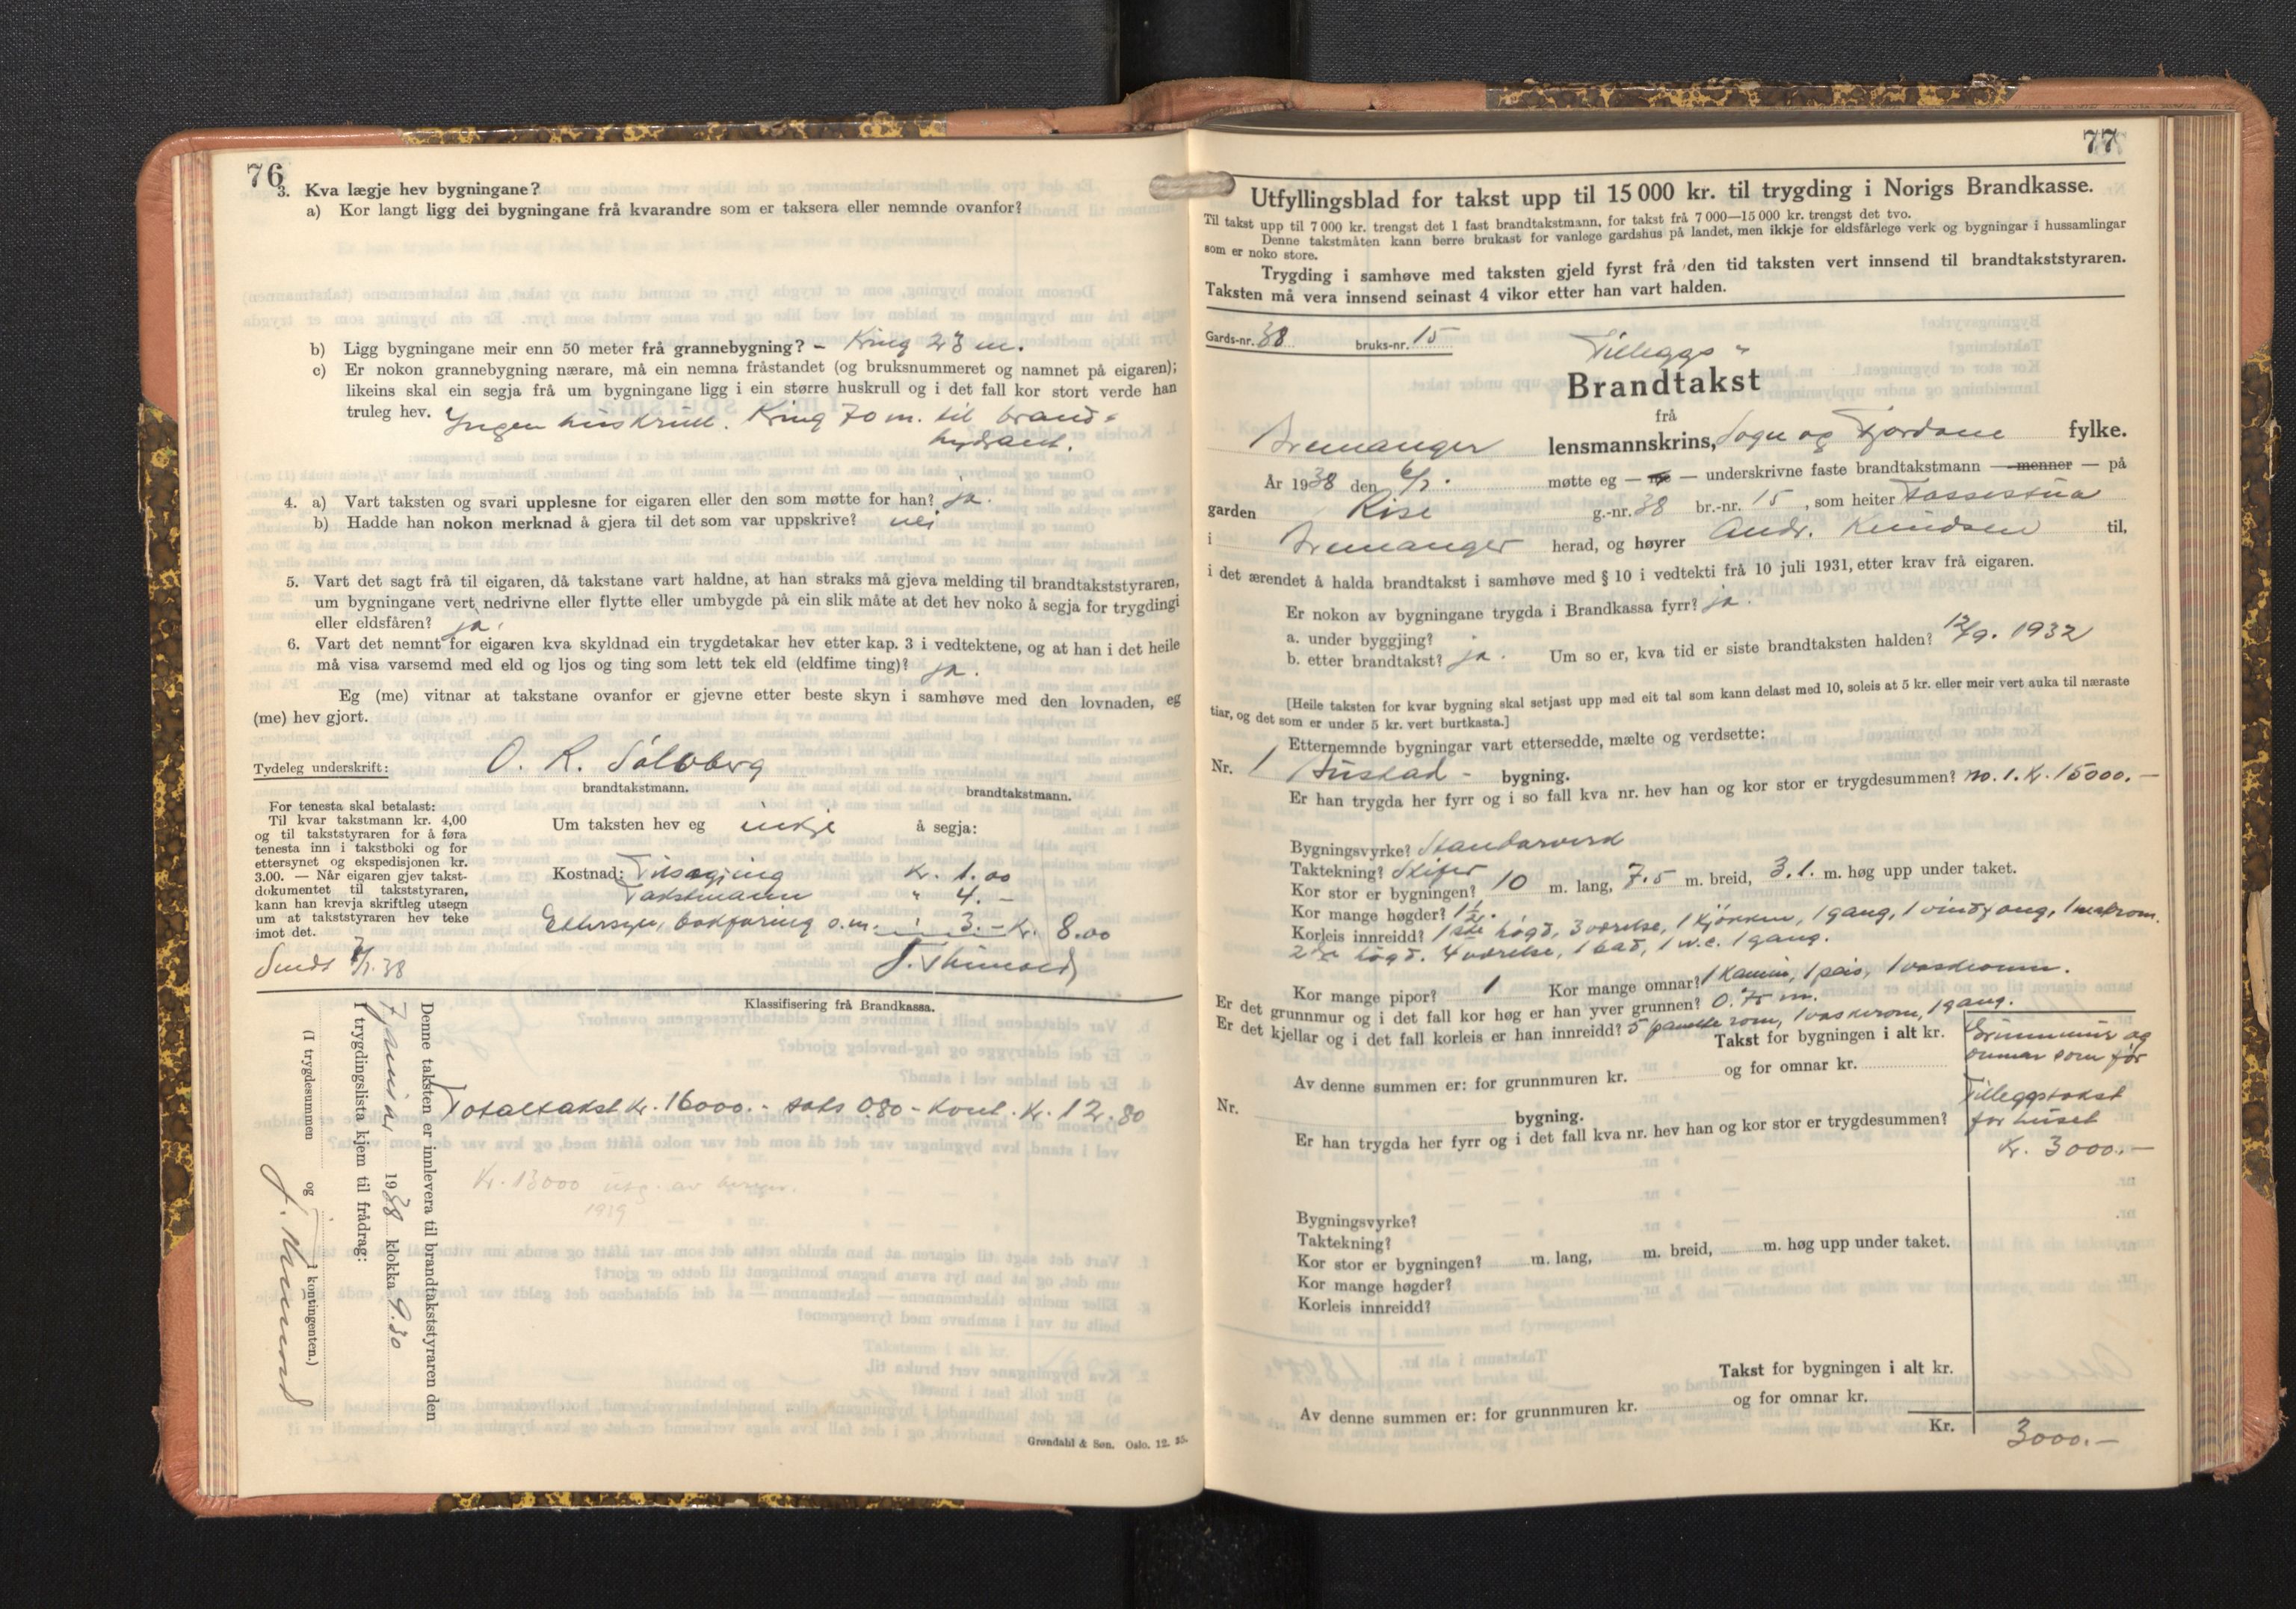 76
3. Kva lægje hev bygningane?
a) Kor langt ligg dei bygningane frå kvarandre som er taksera eller nemnde ovanfor?
b) Ligg bygningane meir enn 50 meter frå grannebygning? – Kring 23 m.
c) Er nokon grannebygning nærare, må ein nemna fråstandet (og bruksnummeret og namnet på eigaren);
likeins skal ein segja frå um bygningane ligg i ein større huskrull og i det fall kor stort verde han
truleg hev. Ingen huskrull. Kring 70 m. til brand-
hydrant.
4. a) Vart taksten og svari upplesne for eigaren eller den som møtte for han? ja.
b) Hadde han nokon merknad å gjera til det som var uppskrive? nei
5. Vart det sagt frå til eigaren, då takstane vart haldne, at han straks må gjeva melding til brandtakststyraren,
um bygningane vert nedrivne eller flytte eller umbygde på ein slik måte at det hev noko å segja for trygdingi
eller eldsfåren? ja.
6. Vart det nemnt for eigaren kva skyldnad ein trygdetakar hev etter kap. 3 i vedtektene, og at han i det heile
må visa varsemd med eld og ljos og ting som lett tek eld (eldfime ting)? ja.
Eg (me) vitnar at takstane ovanfor er gjevne etter beste skyn i samhøve med den lovnaden, eg
(me) hev gjort.
Tydeleg underskrift: O. R. Sølvberg
brandtakstmann. brandtakstmann.
For tenesta skal betalast:
Til kvar takstmann kr. 4,00
og til takststyraren for å føra
tenesta inn i takstboki og for
ettersynet og ekspedisjonen kr.
3.00. — Når eigaren gjev takst-
dokumentet til takststyraren,
kann han krevja skriftleg utsegn
um at takststyraren hev teke
imot det.
Um taksten hev eg inkje å segja:
Kostnad: Tilsegjing Kr. 1.00
Takstmann " 4. –
Ettersyn, bokføring o.m. " 3. – Kr. 8.00
7/1.38
Klassifisering frå Brandkassa.
Denne taksten er innlevera til brandtakststyraren den
7 januar 1938 klokka 9.30
I trygdingslista kjem til frådrag:
(I trygdesummen og i kontingenten.)
Totaltakst Kr. 16000.- sats 080 - kont. Kr. 12.80
Kr. 13000
Grøndahl & Søn. Oslo. 12. 35.
77
Utfyllingsblad for takst upp til 15 000 kr. til trygding i Norigs Brandkasse.
Til takst upp til 7 000 kr. trengst det 1 fast brandtakstmann, for takst frå 7 000—15 000 kr. trengst det tvo.
Denne takstmåten kann berre brukast for vanlege gardshus på landet, men ikkje for eldsfårlege verk og bygningar i hussamlingar
som er noko store.
Trygding i samhøve med taksten gjeld fyrst frå den tid taksten vert innsend til brandtakststyraren.
Taksten må vera innsend seinast 4 vikor etter han vart halden.
Gards-nr. 38 bruks-nr. 15
Tilleggs -
Brandtakst
frå
Bremanger lensmannskrins, Sogn og Fjordane fylke.
År 1938 den 6/1. møtte eg — me — underskrivne faste brandtakstmann — menner — på
garden Rise g.-nr. 38 br.-nr. 15, som heiter
i Bremanger herad, og høyrer Andr. Knudsen til,
i det ærendet å halda brandtakst i samhøve med § 10 i vedtekti frå 10 juli 1931, etter krav frå eigaren.
Er nokon av bygningane trygda i Brandkassa fyrr? ja.
a. under byggjing?
b. etter brandtakst? ja. Um so er, kva tid er siste brandtaksten halden? 12/9. 1932
[Heile taksten for kvar bygning skal setjast upp med eit tal som kann delast med 10, soleis at 5 kr. eller meir vert auka til næraste
tiar, og det som er under 5 kr. vert burtkasta.]
Etternemnde bygningar vart ettersedde, mælte og verdsette:
Nr. 1 Bustad - bygning.
Er han trygda her fyrr og i so fall kva nr. hev han og kor stor er trygdesummen? no. 1. Kr. 15000.—
Bygningsvyrke? Standarverk
Taktekning? Skifer
Kor stor er bygningen? 10 m. lang, 7.5 m. breid, 3.1. m. høg upp under taket.
Kor mange høgder? 1 1/2.
Korleis innreidd? 1ste høgd, 3 værelse, 1 kjøkken, 1 gang, 1 vindfang, 1 matrom.
2dre høgd. 4 værelse, 1 bad, 1 w.c. 1 gang.
Kor mange pipor? 1 Kor mange omnar? 1 Kamin, 1 peis, 1 vaskeomn.
Er det grunnmur og i det fall kor høg er han yver grunnen? 0.75 m.
Er det kjellar og i det fall korleis er han innreidd? 5 rom, 1 vaskerom, 1 gang.
Takst for bygningen i alt kr.
Av denne summen er: for grunnmuren kr. og for omnar kr.
Grunnmur og
omnar som før
Tilleggstakst
for huset
Kr. 3000.—
Nr. bygning.
Er han trygda her fyrr og i det fall kva nr. hev han og kor stor er trygdesummen?
Bygningsvyrke?
Taktekning?
Kor stor er bygningen? m. lang, m. breid, m. høg upp under taket.
Kor mange høgder?
Korleis innreidd?
Takst for bygningen i alt kr.
Av denne summen er: for grunnmuren kr. og for omnar kr.
Kr. 3000.—